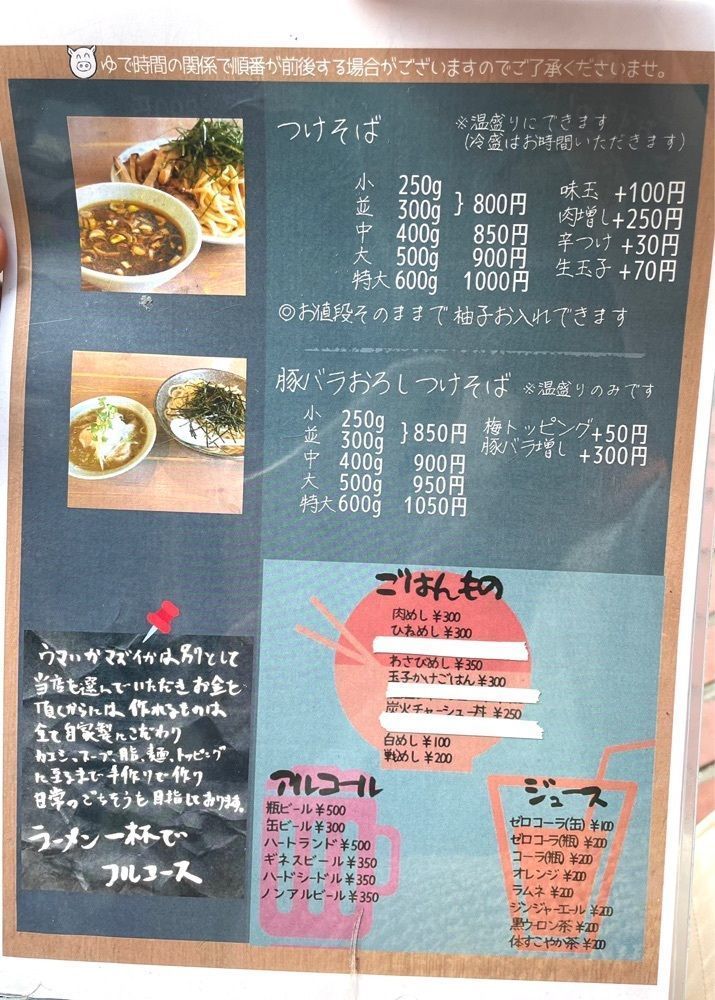 ゆで時間の関係で順番が前後する場合がございますのでご了承くださいませ。
つけそば
※温盛りにできます
(冷盛はお時間いただきます)
小 250g
並 300g } 800円
中 400g 850円
大 500g 900円
特大 600g 1000円
味玉 +100円
肉増し +250円
辛つけ +30円
生玉子 +70円
◎お値段そのままで柚子お入れできます
豚バラおろしつけそば ※温盛りのみです
小 250g
並 300g } 850円
中 400g 900円
大 500g 950円
特大 600g 1050円
梅トッピング +50円
豚バラ増し +300円
ごはんもの
肉めし ¥300
ひねめし ¥300
わさびめし ¥350
玉子かけごはん ¥300
炭火チャーシュー丼 ¥250
白めし ¥100
戦めし ¥200
ウマいかマズイかは別として
当店を選んでいただきお金を
頂くからには作れるものは
全て自家製にこだわり
カエシ、スープ、脂、麺、トッピング
に至るまで手作りで作り
日常のごちそうを目指しております。
ラーメン一杯で
フルコース
アルコール
瓶ビール ¥500
缶ビール ¥300
ハートランド ¥500
ギネスビール ¥350
ハードシードル ¥350
ノンアルビール ¥350
ジュース
ゼロコーラ(缶) ¥100
ゼロコーラ(瓶) ¥200
コーラ(瓶) ¥200
オレンジ ¥200
ラムネ ¥200
ジンジャーエール ¥200
黒ウーロン茶 ¥200
体すこやか茶 ¥200